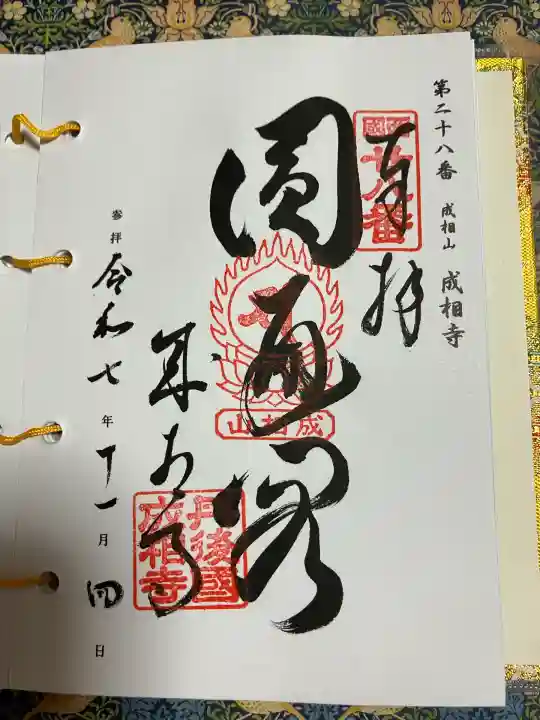 第二十八番 成相山 成相寺
奉拝
西国廿八番
圓通閣
成相山
成相寺
丹後國成相寺
参拝 令和七年十一月四日